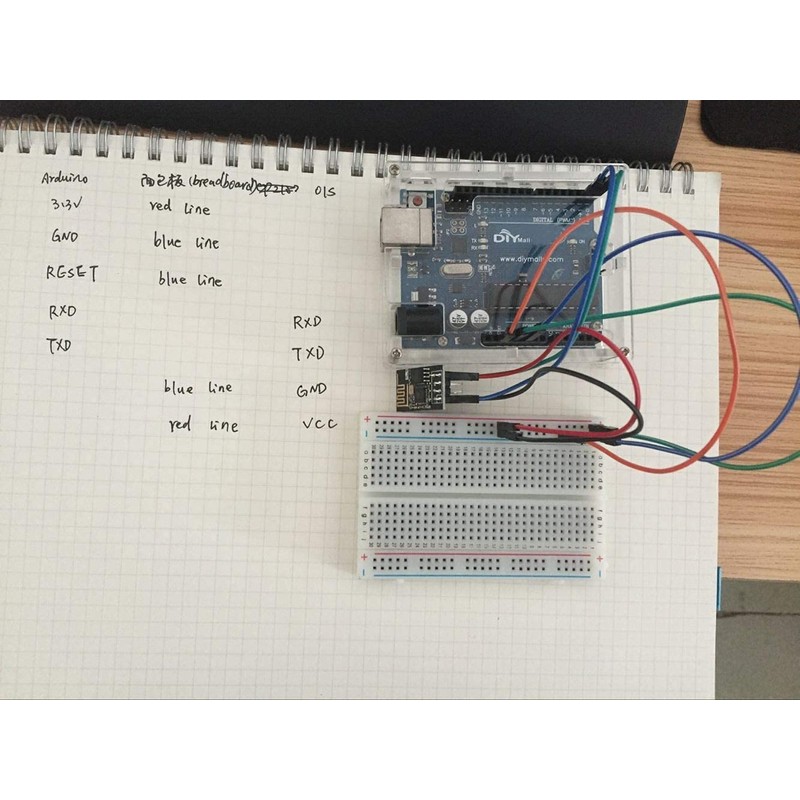 Arduino 面包板(breadboard) 01S
3.3V red line
GND blue line
RESET blue line
RXD RXD
TXD TXD
blue line GND
red line VCC
DIY Mall
www.diymalls.com
DIGITAL (PWM~)
TX
RX
ON
+
-
a b c d e
f g h i j
+
-